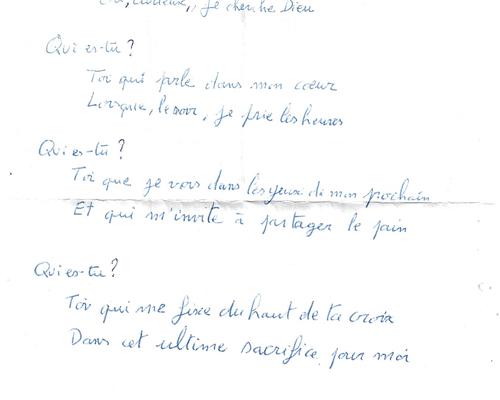 curieux, je cherche Dieu
Qui es-tu ?
Toi qui parle dans mon coeur
Lorsque, le soir, je prie les heures
Qui es-tu ?
Toi que je vois dans les yeux de mon prochain
Et qui m'invite à partager le pain
Qui es-tu ?
Toi qui me fixe du haut de ta croix
Dans cet ultime sacrifice, pour moi